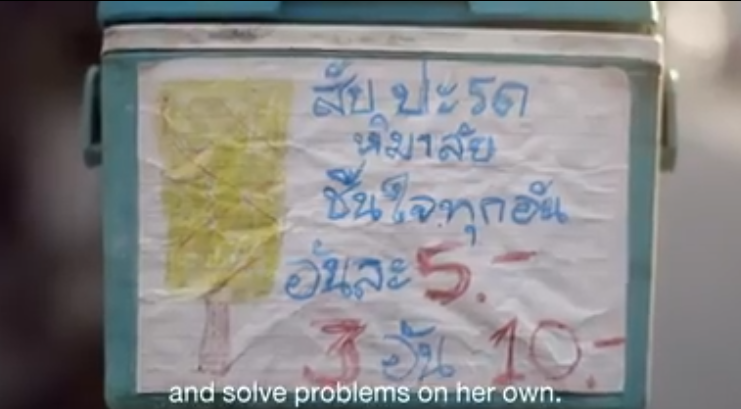 สับปะรด
หิมาลัย
ชื่นใจทุกอัน
อันละ 5.-
3 อัน 10.-
and solve problems on her own.